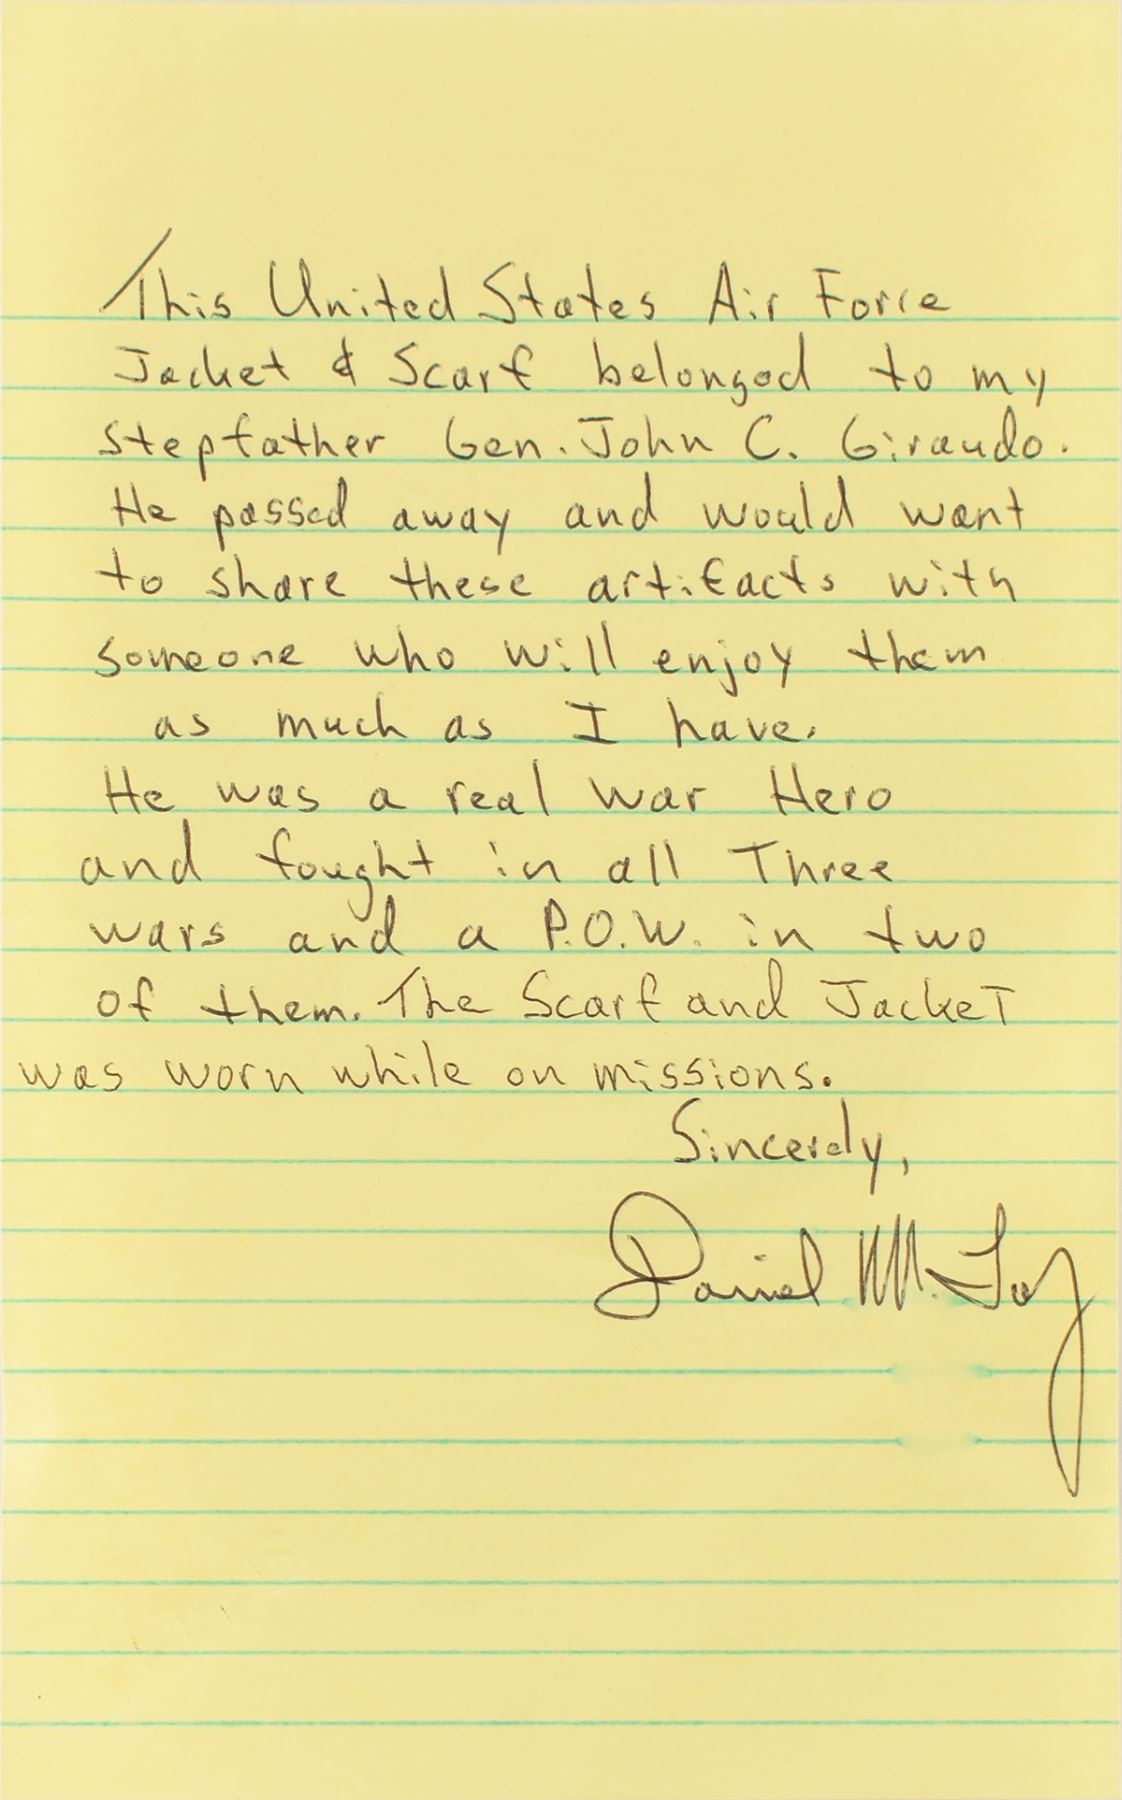 This United States Air Force
Jacket & Scarf belonged to my
stepfather Gen. John C. Giraudo.
He passed away and would want
to share these artifacts with
someone who will enjoy them
as much as I have.
He was a real war Hero
and fought in all Three
wars and a P.O.W. in two
of them. The Scarf and Jacket
was worn while on missions.
Sincerely,
Daniel M.